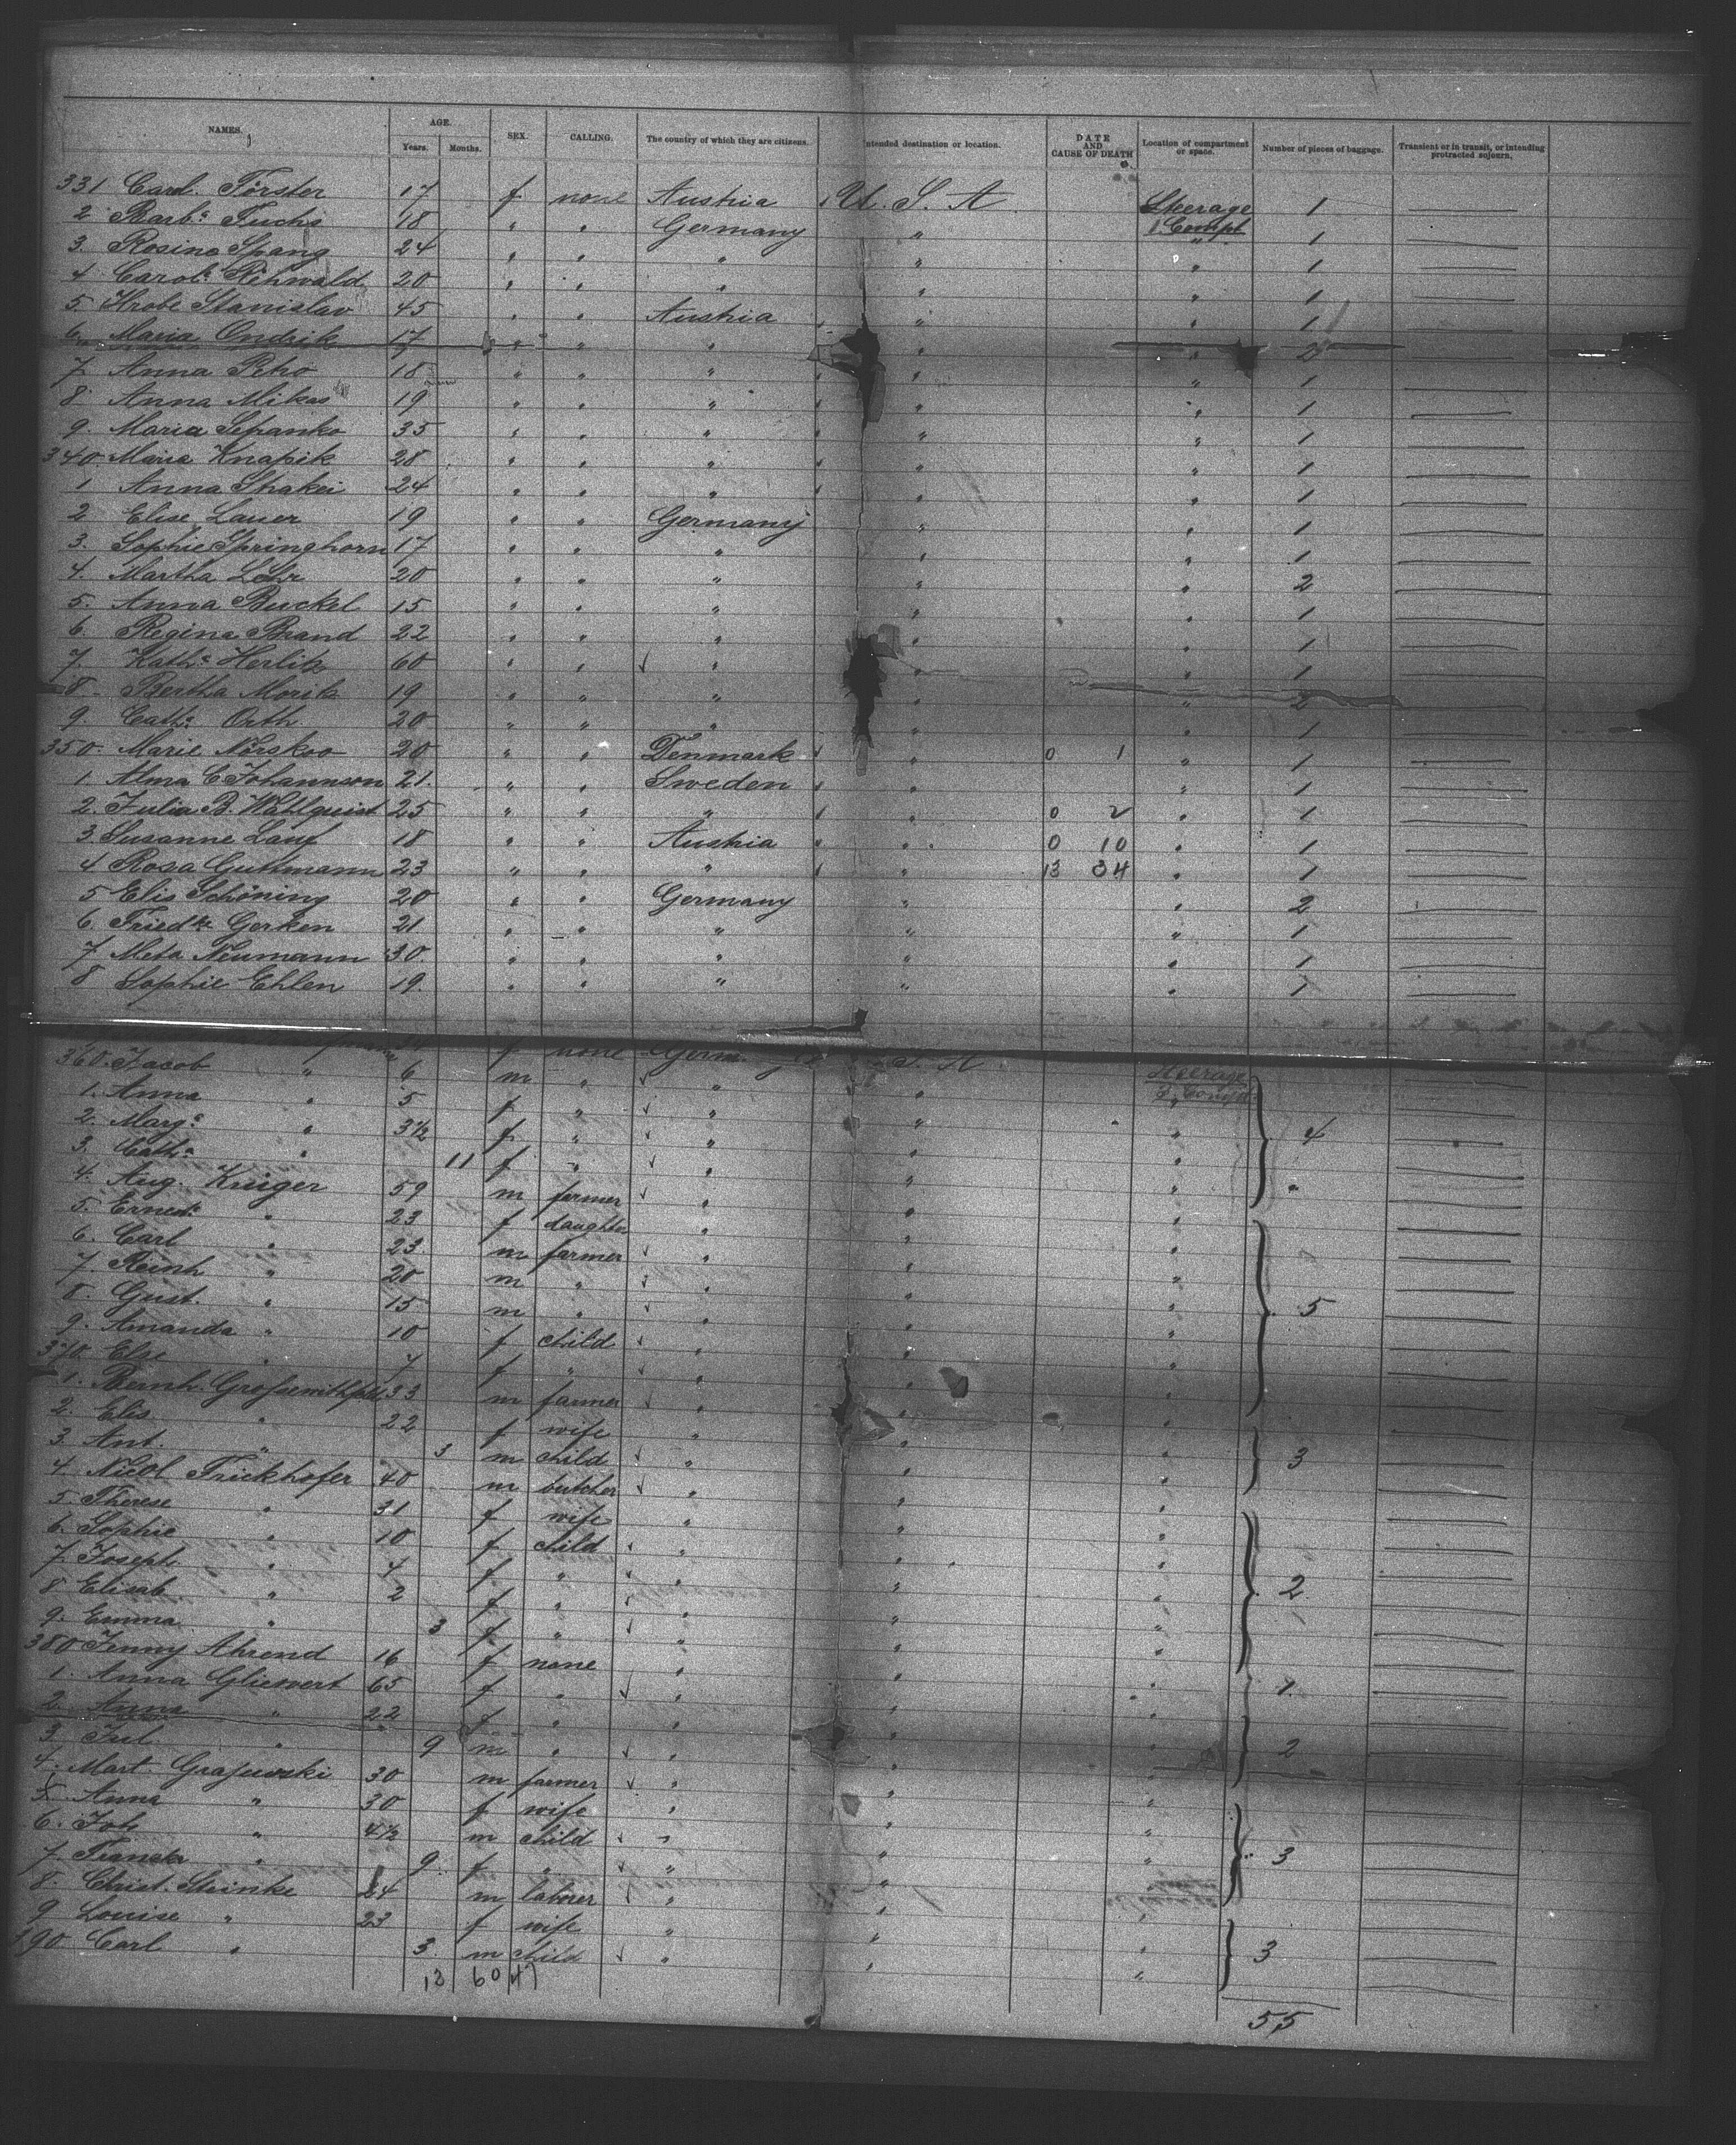 NAMES. AGE. Years. Months. SEX. CALLING. The country of which they are citizens. Intended destination or location. DATE AND CAUSE OF DEATH Location of compartment or space. Number of pieces of baggage. Transient or in transit, or intending protracted sojourn.
331 Carol. Förster 17 f none Austria U. S. A. Steerage 1
2 Barb.a Fuchs 18 " " Germany " 1 Compt. 1
3. Rosina Spang 24 " " " " " 1
4 Carol.e Rehwald 20 " " " " " 1
5. Hrobe Stanislav 45 " " Austria " " 1
6. Maria Ondrik 17 " " " " "
7 Anna Petro 18 " " " " " 1
8 Anna Mikas 19 " " " " " 1
9. Maria Sepanko 35 " " " " " 1
340. Maria Knapik 28 " " " " " 1
1 Anna Strakei 24 " " " " " 1
2 Elise Lauer 19 " " Germany " " 1
3. Sophie Springhorn 17 " " " " " 1
4. Martha Löhr 20 " " " " " 2
5. Anna Buckel 15 " " " " " 1
6. Regina Brand 22 " " " " " 1
7. Kath.a Herlik 60 " " " " " 1
8 Bertha Morik 19 " " " " " 2
9. Cath.a Orth 20 " " " " " 1
350. Marie Norskov 20 " " Denmark " 0 1 " 1
1 Alma C Johannson 21. " " Sweden " " 1
2. Julia B. Wahlquist 25 " " " " 0 2 " 1
3. Susanne Lauf 18 " " Austria " 0 10 " 1
4 Rosa Guthmann 23 " " " " 13 34 " 1
5 Elis Schöning 20 " " Germany " " 2
6. Friedke Gerken 21 " " " " " 1
7 Meta Neumann 30. " " " " " 1
8 Sophie Ehlen 19. " " " " " 1
f none Germany S. A
360. Jacob " 6 m " " " Steerage
1. Anna " 5 f " " " 3 Compt.
2. Marg.a " 3½ f " " " " 4
3. Cath.a " 11 f " " " "
4. Aug. Krüger 59 m farmer " " "
5. Ernest.e " 23 f daughter " " "
6. Carl " 23 m farmer " " "
7. Reinh " 20 m " " " "
8. Gust. " 15 m " " " " 5
9. Amanda " 10 f child " " "
370. Else " 7 f " " " "
1. Bernh. 33 m farmer " " "
2. Elis " 22 f wife " " "
3. Ant. " 3 m child " " " 3
4. Nicol Frickhofer 40 m butcher " " "
5. Therese " 31 f wife " " "
6. Sophie " 10 f child " " "
7. Joseph " 4 f " " " "
8 Elisab. " 2 f " " " " 2
9. Emma " 3 f " " " "
380 Jenny Ahrend 16 f none " " "
1. Anna Gliewert 65 f " " " " 1.
2. Anna " 22 f " " " "
3. Jul. " 9 m " " " " 2
4. Mart Grajewski 30 m farmer " " "
5. Anna " 30 f wife " " "
6. Joh " 4½ m child " " "
7. " 9 f " " " " 3
8. Christ. Steinke 24 m laborer " "
9 Louise " 23 f wife " " "
390 Carl " 3. m child " " " 3
13 60 47
55